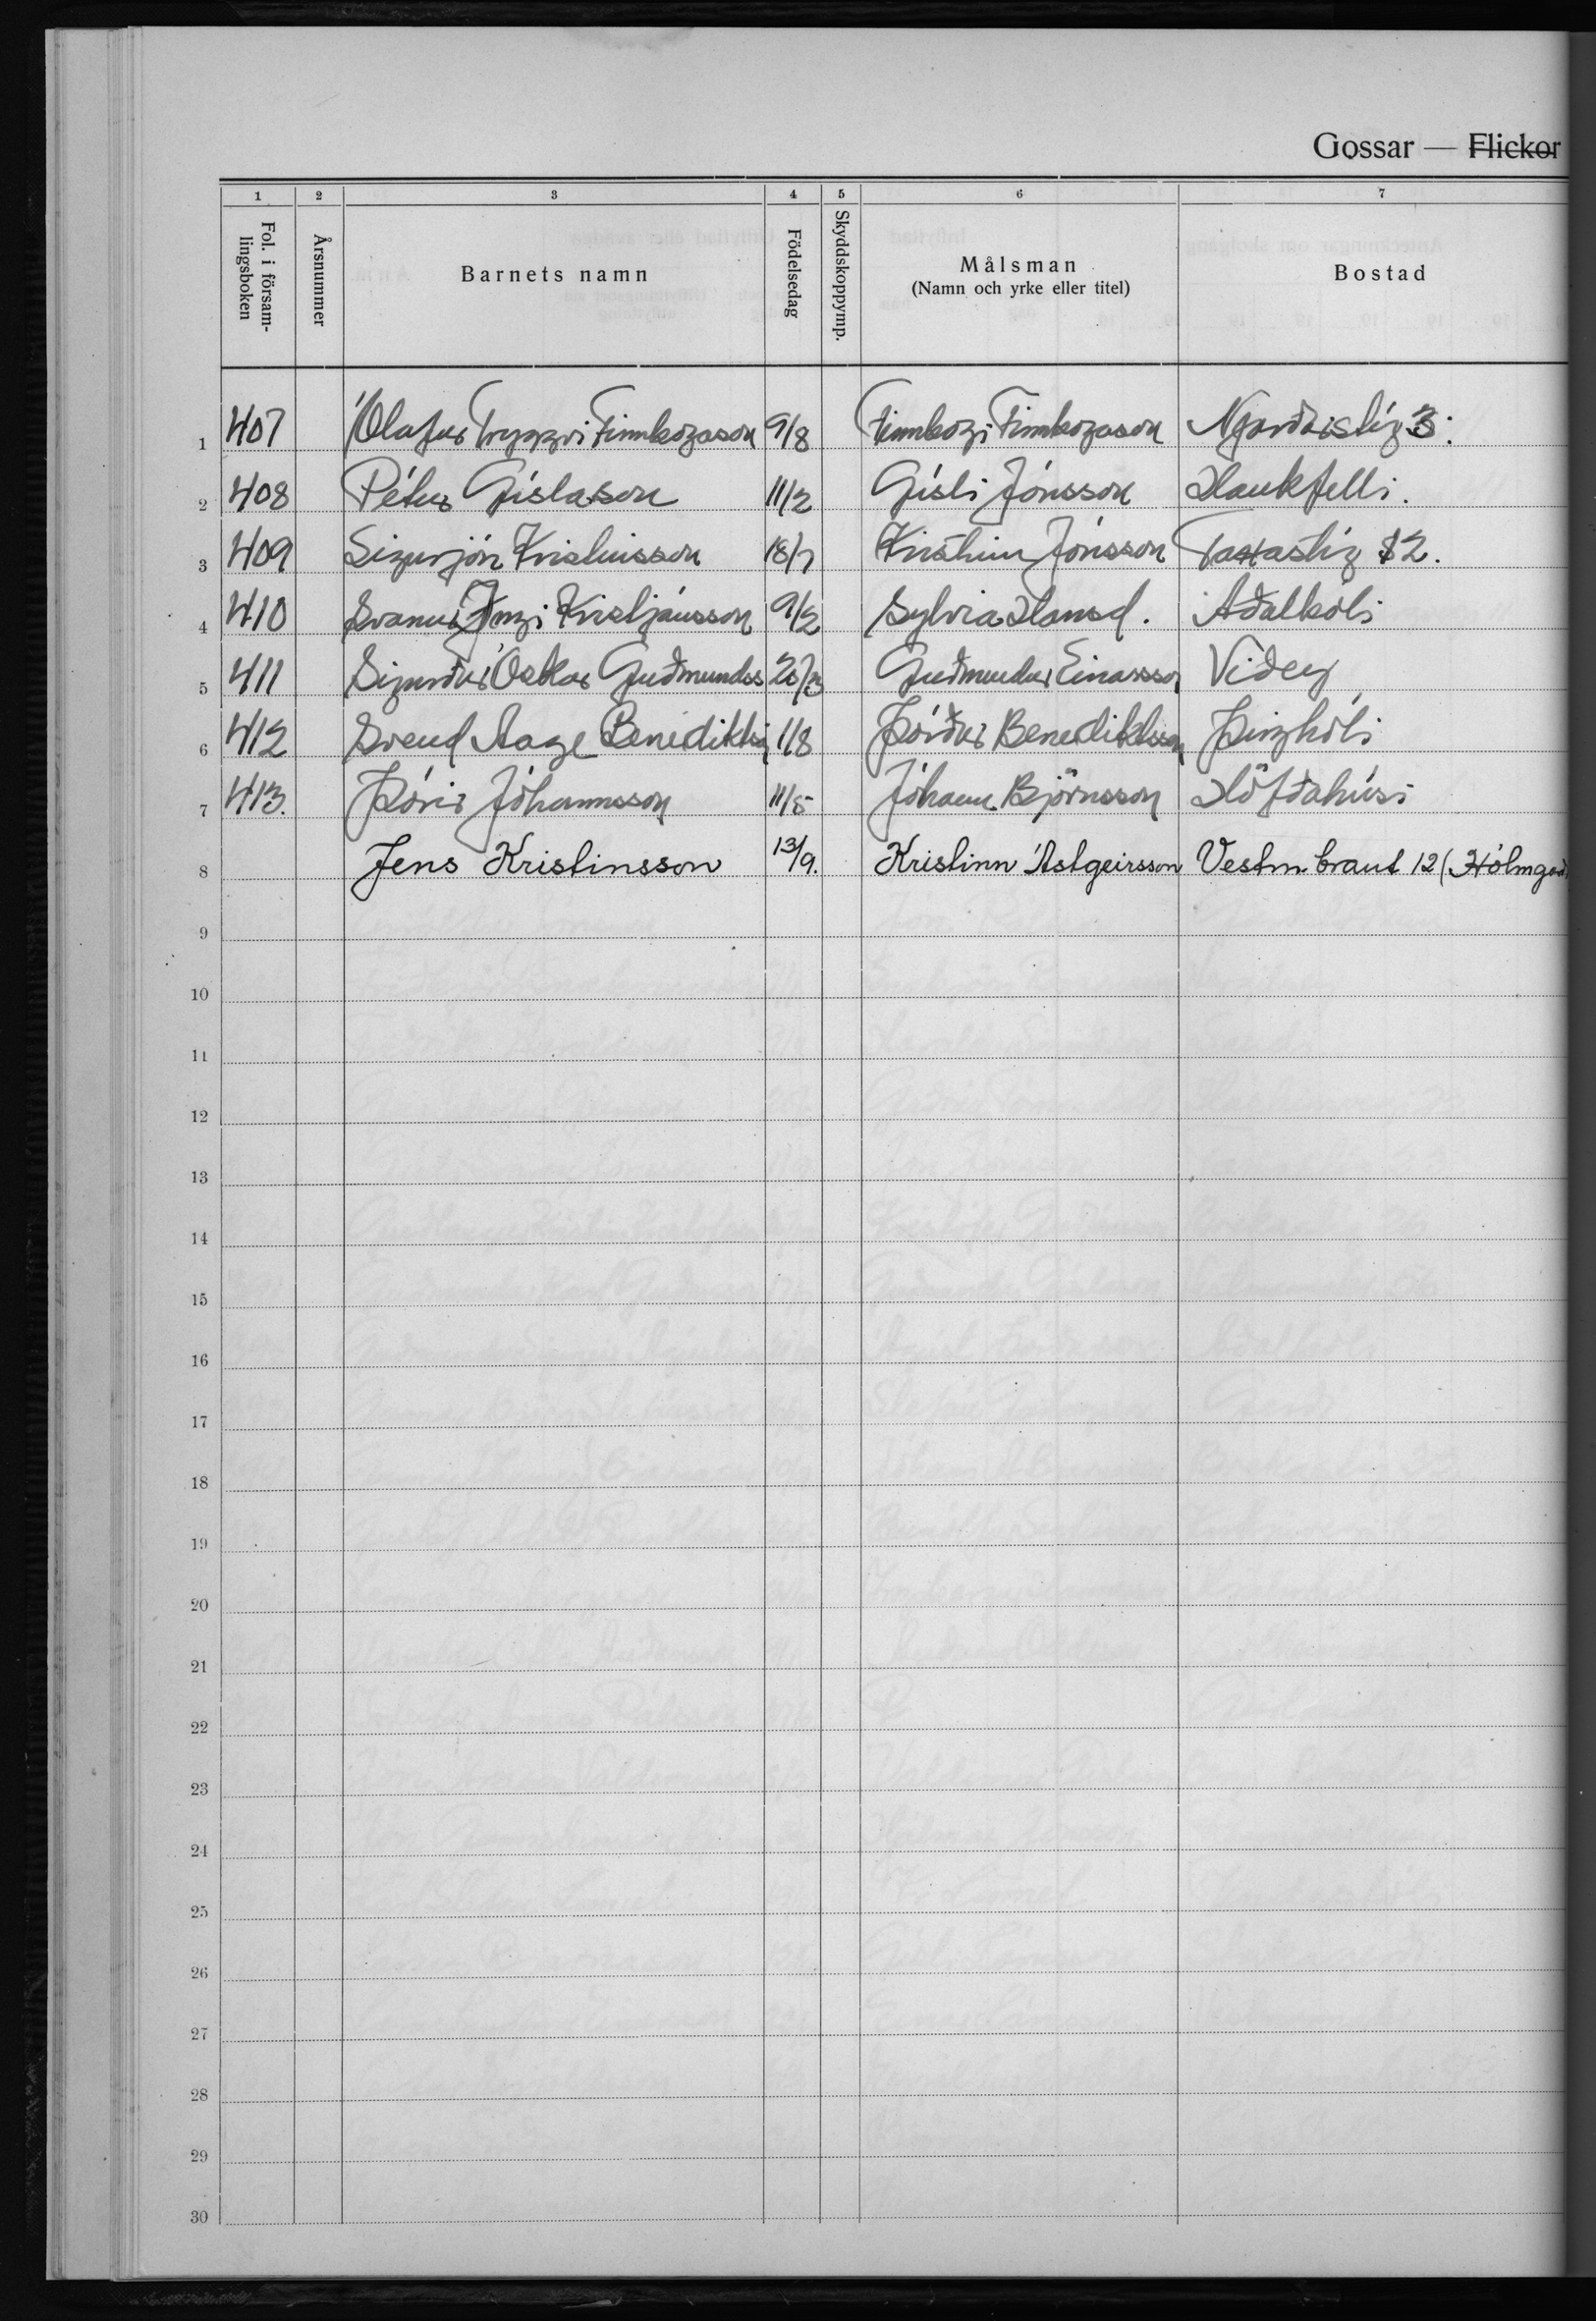 Gossar — Flickor
1 2 3 4 5 6 7
Fol. i församlingsboken Årsnummer Barnets namn Födelsedag Skyddskoppymp. Målsman (Namn och yrke eller titel) Bostad
1 407 Ólafur Tryggvi Finnbogason 9/8 Finnbogi Finnbogason Njarðastíg 3.
2 408 Pétur Gíslason 11/2 Gísli Jónsson Haukfelli.
3 409 Sigurjón Kristinsson 18/7 Kristinn Jónsson Faxastíg 12.
4 410 Svanur Ingi Kristjánsson 9/2 Sylvia Hansd. Aðalbóli
5 411 Sigurður Óskar Guðmundss Guðmundur Einarsson Viðey
6 412 Svend Aage Benediktss 1/8 Þórður Benediktsson Þinghóli
7 413. Þórir Jóhannsson 11/5 Jóhann Björnsson Höfðahúsi
8 Jens Kristinsson 13/9. Kristinn Ástgeirsson Vestm.braut 12 (Hólmgarð
9
10
11
12
13
14
15
16
17
18
19
20
21
22
23
24
25
26
27
28
29
30